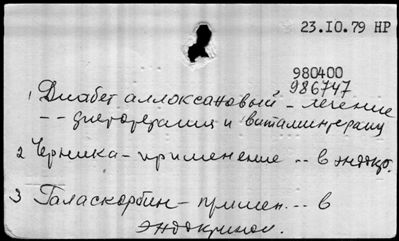 23.10.79 НР
980400
986747
1 Диабет аллоксановый - лечение
-- диетотерапия и витаминтерапия
2 Черника - применение .. в эндокр.
3 Галаскорбин - примен... в
эндокринол.